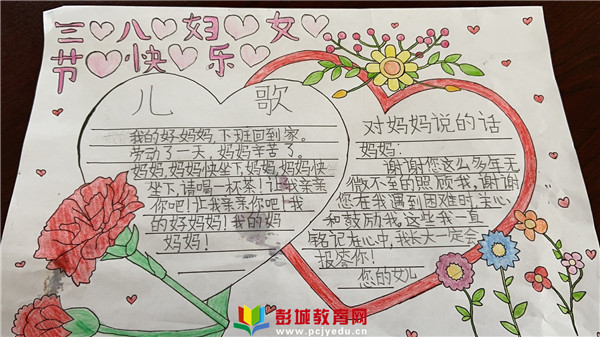 三八妇女
节快乐
儿歌
我的好妈妈,下班回到家。
劳动了一天,妈妈辛苦了。
妈妈,妈妈快坐下,妈妈,妈妈快
坐下,请喝一杯茶!让我亲亲
你吧!让我亲亲你吧!我
的好妈妈!我的妈
妈妈!
对妈妈说的话
妈妈:
谢谢您这么多年无
微不至的照顾我,谢谢
您在我遇到困难时,关心
和鼓励我,这些我一直
铭记在心中,我长大一定会
报答你!
您的女儿
彭城教育网
www.pcjyedu.cn